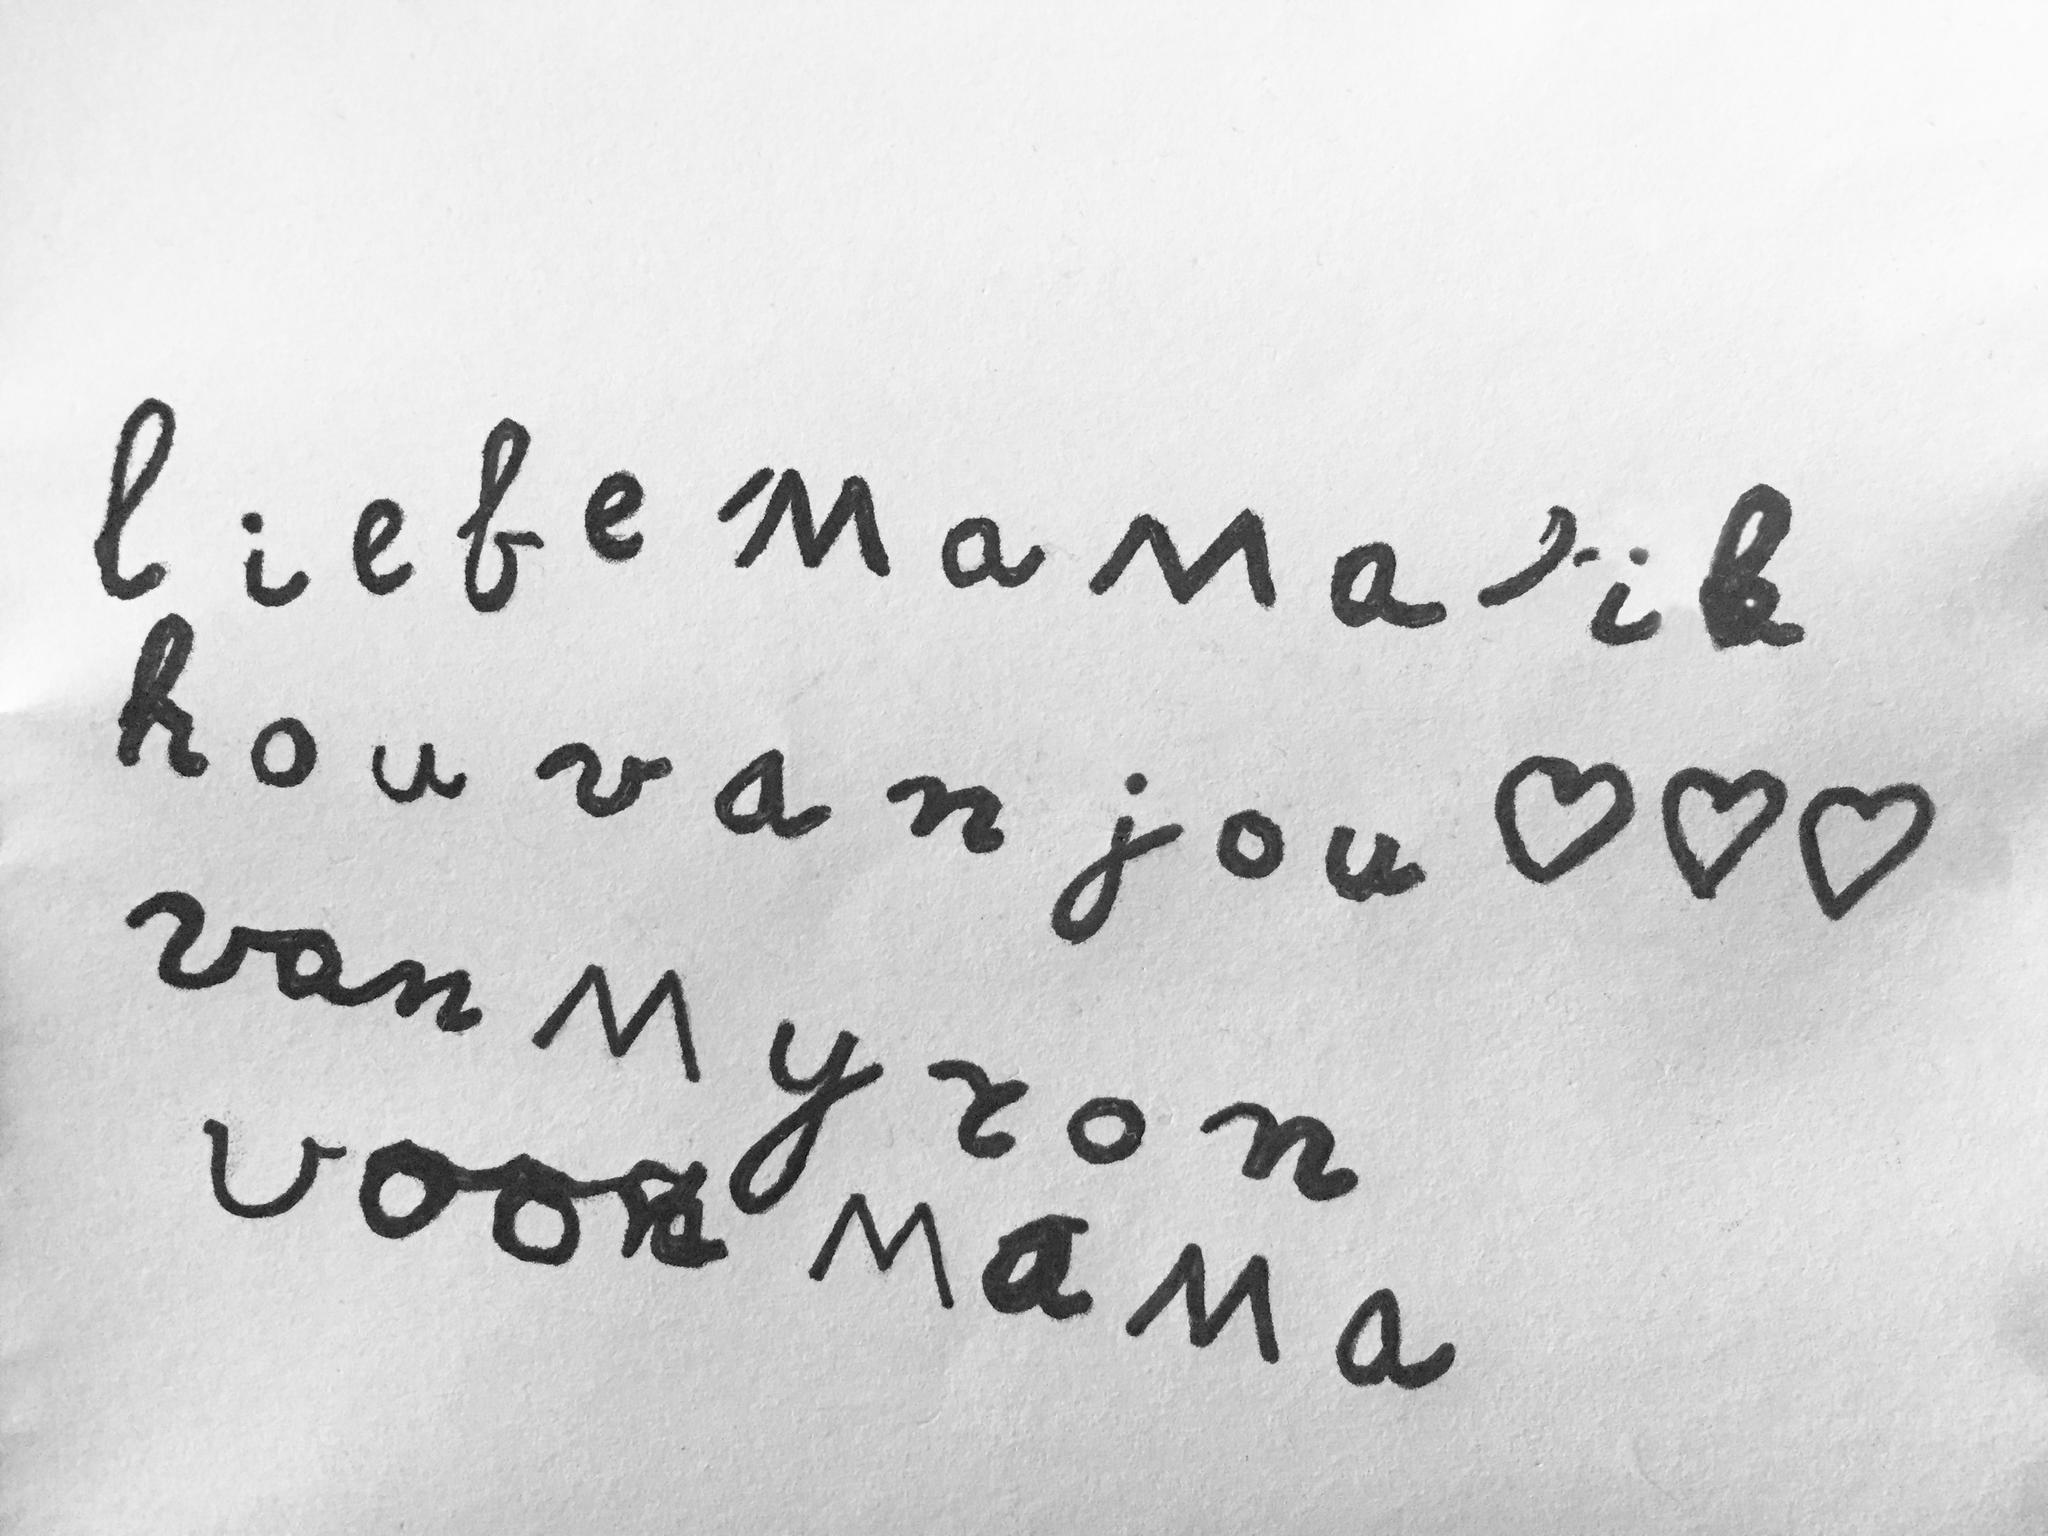 liefe MaMa, ik
hou van jou ♡♡♡
van Myron
voor MaMa